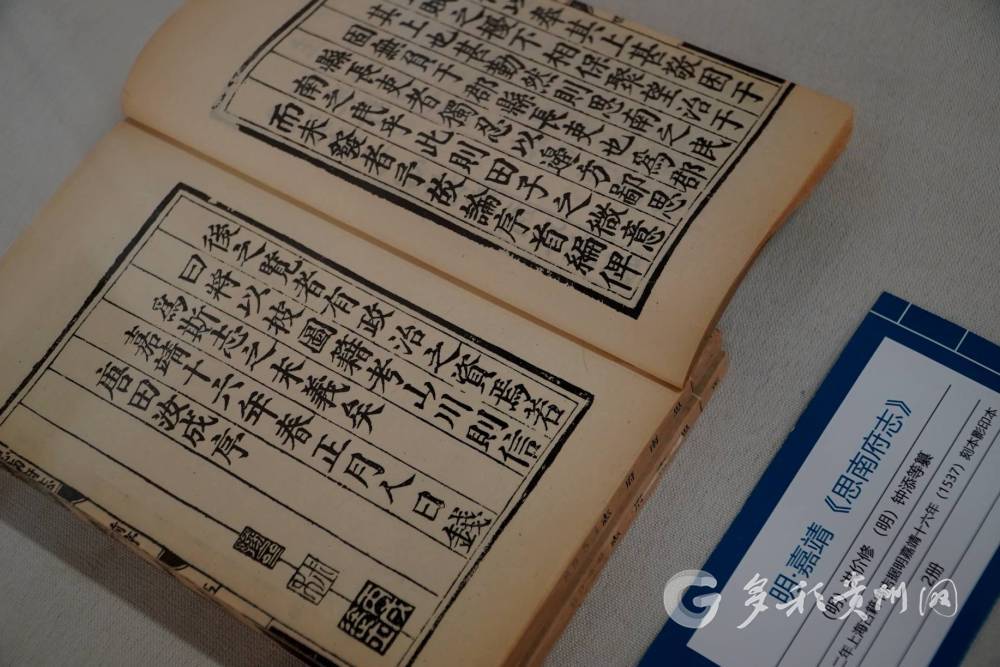 以奉其上甚敬困于
之極不相保聚望治于
其上也甚勤然則思南之民
固無負于郡縣長吏也爲郡
縣長吏者獨忍以邊方鄙思
南之民乎此則田子之微意
而未發者予故論序首編俾
後之覽者有政治之資焉若
曰將以按圖籍考山川則信
爲斯志之末義矣
嘉靖十六年春正月人日錢
唐田汝成序
明·嘉靖《思南府志》
（明）洪价修 （明）钟添等纂
年上海古籍书店据明嘉靖十六年（1537）刻本影印本
2册
多彩贵州网